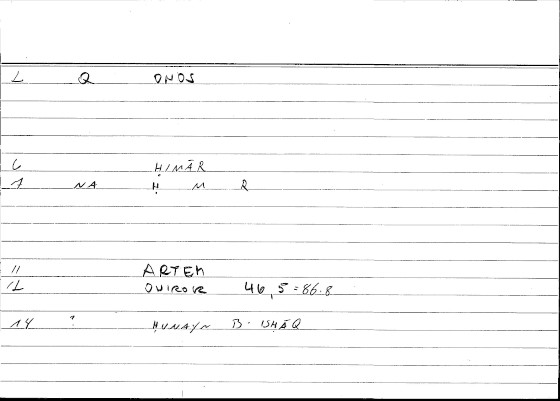 L Q ONOS
6 ḤIMĀR
7 NA Ḥ M R
11 ARTEM
12 OUIROUR 46,5=86.8
14 ? ḤUNAYN B. ISḤĀQ